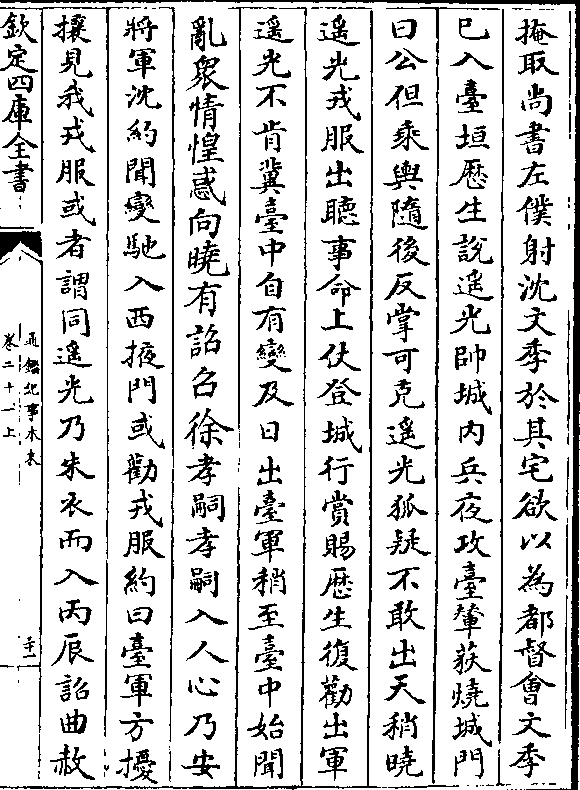 掩取尚書左僕射沈文季於其宅欲以為都督會文季
已入臺垣歴生說遥光帥城内兵夜攻臺輦荻燒城門
曰公但乘輿隨後反掌可克遥光狐疑不敢出天稍曉
遥光戎服出聽事命上仗登城行賞賜歴生復勸出軍
遥光不肯冀臺中自有變及日出臺軍稍至臺中始聞
亂衆情惶惑向曉有詔召徐孝嗣孝嗣入人心乃安
將軍沈約聞變馳入西掖門或勸戎服約曰臺軍方擾
攘見我戎服或者謂同遥光乃朱衣而入丙辰詔曲赦
欽定四庫全書
通鑑紀事本末
卷二十一上